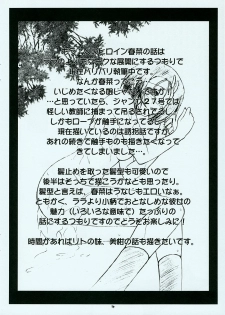 ヒロイン春菜の話は
な展開にするつもりで
バリバリ執筆中です
が春菜って…
いじめたくなる
…と思っていたら、ジャンプ27号では
怪しい教師に捕まってるし
しかもロープが触手になってるし！
現在描いているのは誘拐話ですが
あれの続きで触手ものも描きたくなって
きてしまいました…。
髪止めを取った髪型も可愛いので
後半はそっちで描こうかなとも思ったり。
髪型と言えば、春菜はうなじもエロいなぁ。
ともかく、ララより小柄でおとなしめな彼女の
魅力（いろいろな意味で）たっぷりの
話にするつもりですのでどうぞお楽しみに！
時間があればリトの妹、美柑の話も描きたいです。